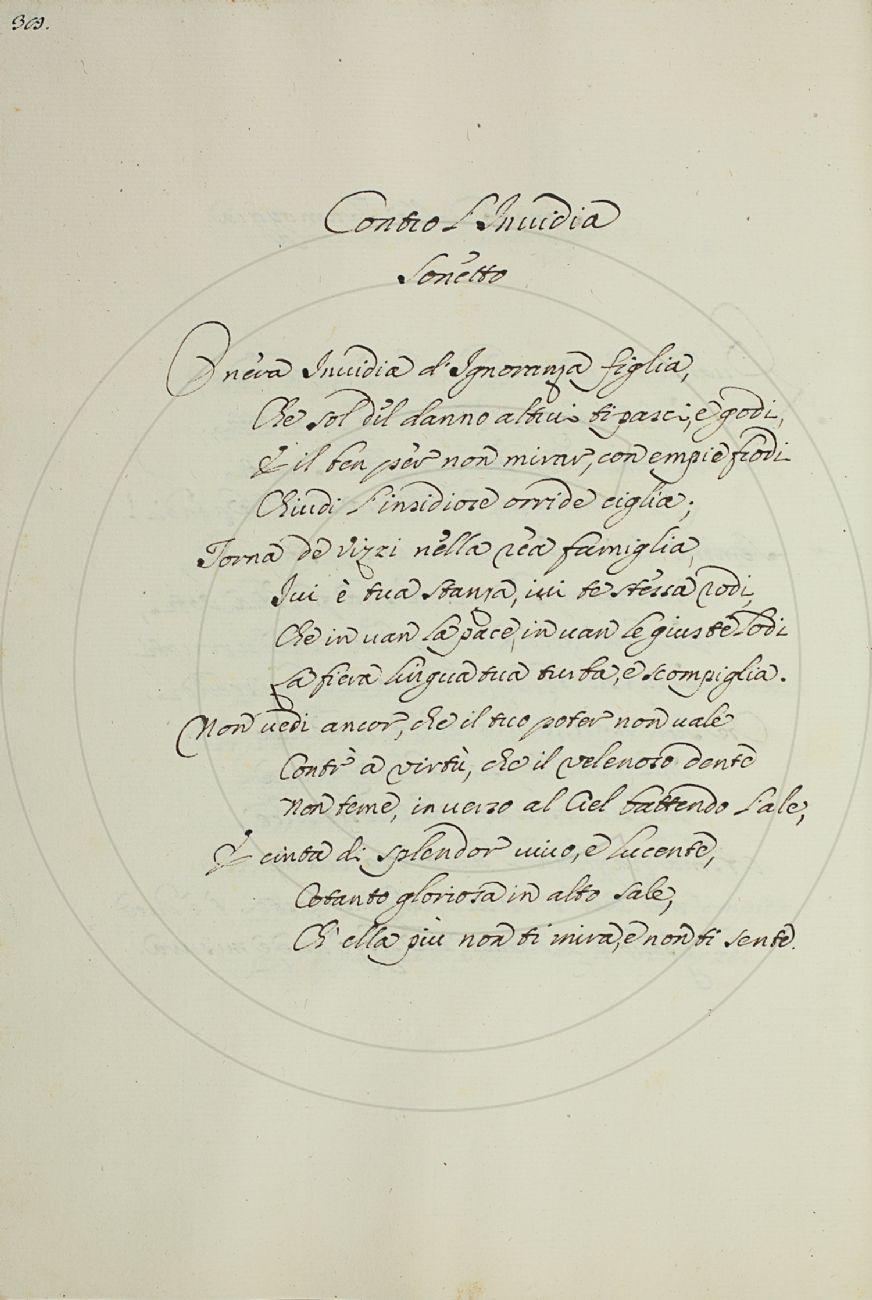 369.
Contro l'Invidia
Sonetto
O nera Invidia d'Ignoranza figlia,
Che sol dil danno altrui ti pasci, e godi,
E il ben per non mirar, con empie frodi
Chiudi l'insidiose orride ciglia;
Torna de Vizzi nella rea famiglia,
Ivi è tua stanza, ivi te stessa rodi,
Che in van la pace, in van le giuste lodi
La fiera lingua tua turba, e scompiglia.
Non vedi ancor, che il tuo poter non vale
Contr' a virtù, che il velenoso dente
Non teme, in verso al Ciel battendo l'ale,
E cinta di splendor vivo, e lucente,
Cotanto gloriosa in alto sale,
Ch' ella più non ti mira, e non ti sente.